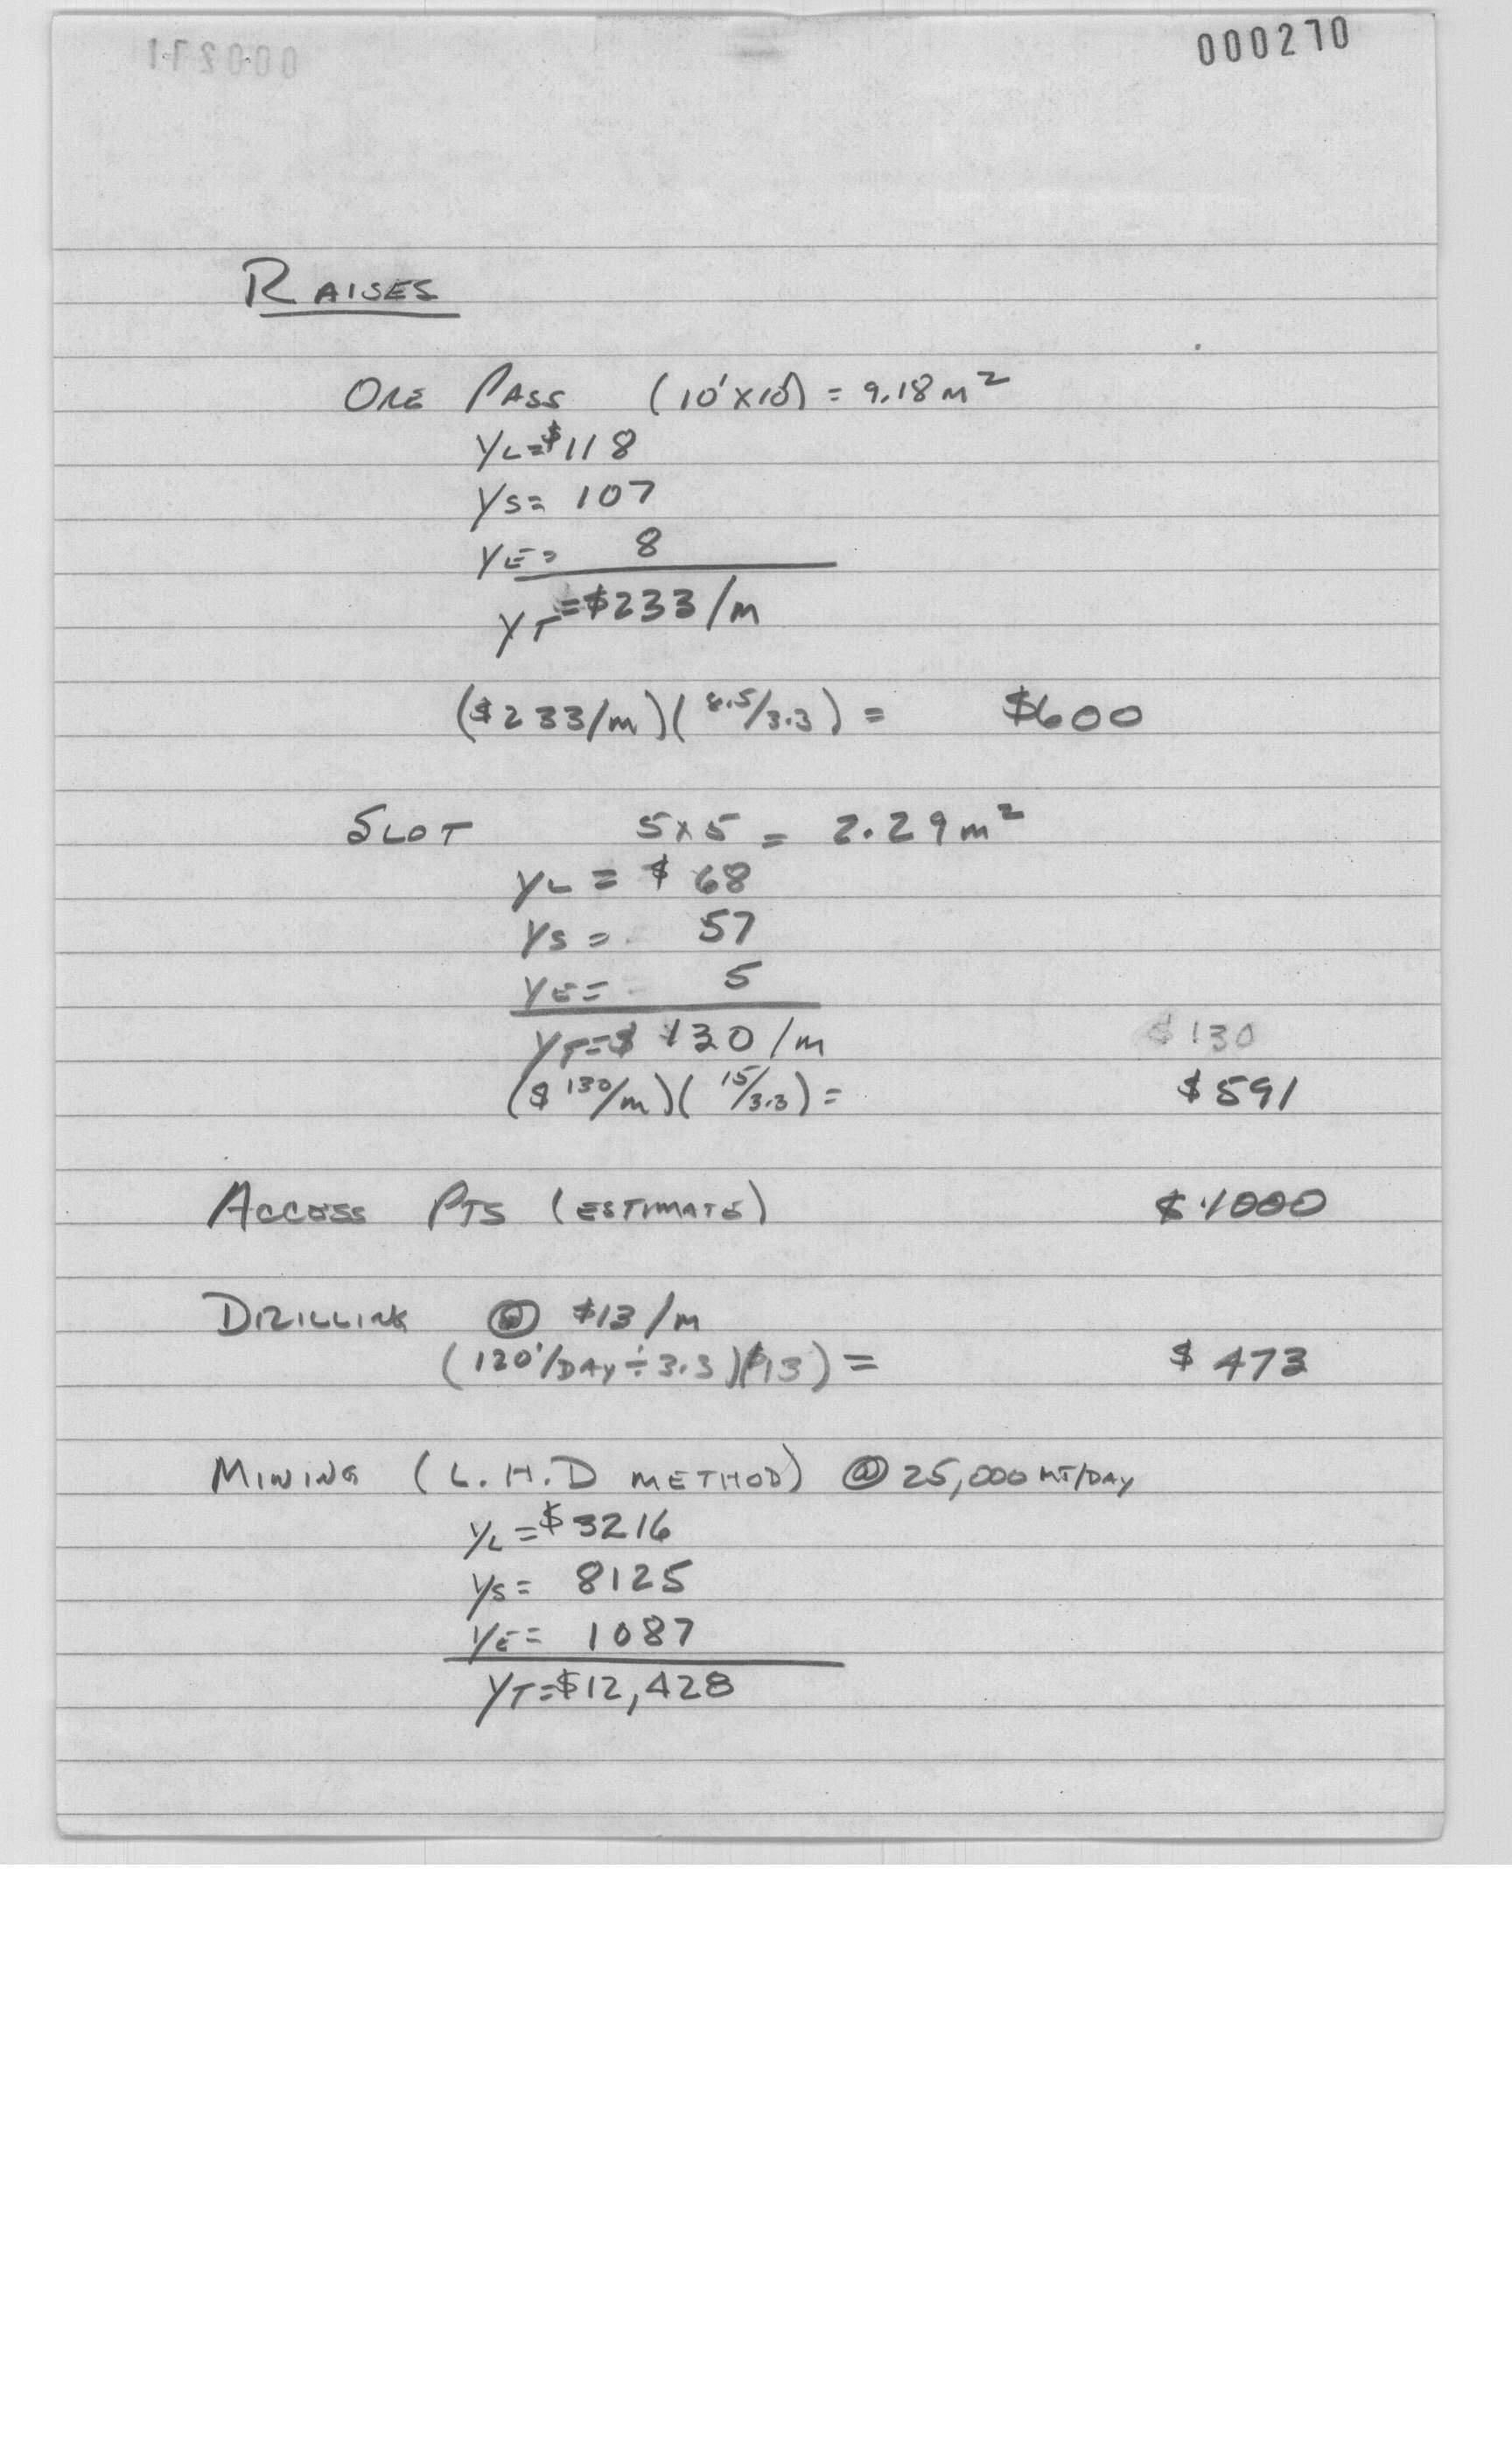 000270
000271
RAISES
ORE PASS (10'x10') = 9.18 m²
YL=$118
YS= 107
YE= 8
YT=$233/m
($233/m)(8.5/3.3) = $600
SLOT 5x5 = 2.29 m²
YL = $ 68
YS = 57
YE= 5
YT=$ 130/m $130
($130/m)(15/3.3) = $591
ACCESS PTS (ESTIMATE) $1000
DRILLING @ $13/m
(120'/DAY ÷ 3.3)($13) = $473
MINING (L.H.D METHOD) @ 25,000 MT/DAY
YL=$3216
YS= 8125
YE= 1087
YT=$12,428